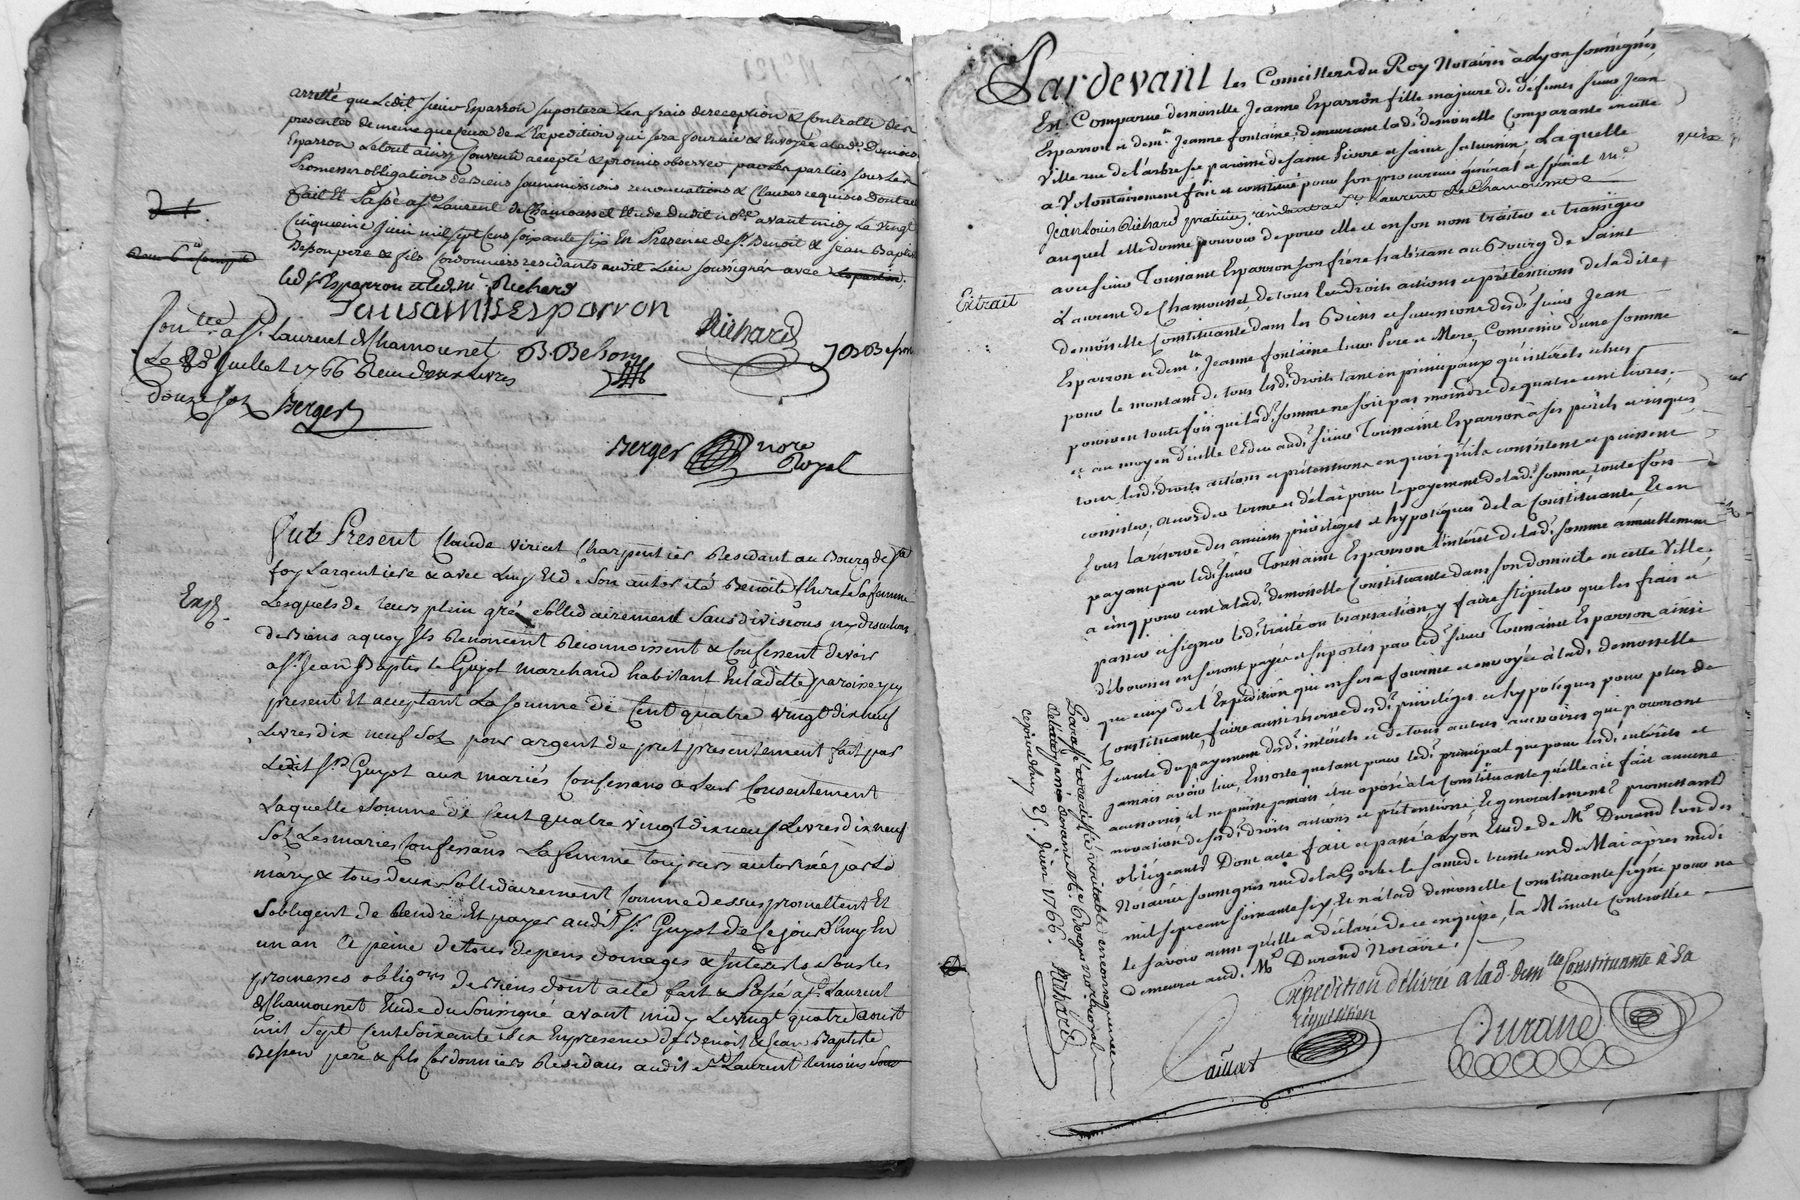 arretté que ledit sieur Esparron suportera les frais de reception & Controlle des
presentes de meme que ceux de L'Expedition qui sera fournie & Envoyée a lad. Demoise.
Esparron Le tout ainsy Convenu accepté & promis observer par les parties sous Les
Promesses obligations de Biens soummissions renonciations & Clauses requises Dont acte
Fait Et Passé a St Laurent de Chamousset Etude dudit nore avant midy Le vingt
Cinquieme Juin mil sept Cens soixante six En Presence de Sr Benoit & Jean Baptis
Besson pere & fils Cordonniers residants audit Lieu soussignés avec
led Sr Esparron et led. Me Richard
Tousaint Esparron
Contlle a St Laurent de Chamousset
B. Besson
Richard
JB Besson
Le 8 Juillet 1766 Recu deux Livres
Douze sols Berger
Berger nore
Royal
Fut Present Claude Viricel Charpentier Residant au Bourg de Ste
foy Largentiere & avec Luy Et de Son autorité Benoite sa femme
Lesquels de leurs plein gré Sollidairement Sans division ny discution
de Biens aquoy ils Renoncent Reconnoissent & Confessent devoir
a Sr Jean Baptiste Guyot marchand habitant En ladette paroisse icy
present Et acceptant La Somme de Cent quatre vingt dix neuf
Livres dix neuf Sols pour argent de pret presentement fait par
Ledit Sr Guyot aux mariés Confessans a Leur Consentement
Laquelle Somme de Cent quatre vingt dix neuf Livres dix neuf
Sols Les mariés Confessans La femme toujours autorisée par Sd
mary & tous deux Sollidairement Comme dessus promettent Et
Sobligent de Rendre Et payer audit Sr Guyot de Ce jourd'huy En
un an a peine de tous depens domages & Interests sous les
promesses obligons de Biens dont acte fait & Passé a St Laurent
de Chamousset Etude du Soussigné avant midy Le vingt quatre aoust
mil Sept Cent Soixante Six En presence de Benoit & Jean Baptiste
Besson pere & fils Cordonniers Residans audit St Laurent temoins
Pardevant les Conseillers du Roy Notaires à Lyon soussignés
Est Comparue demoiselle Jeanne Esparron fille majeure de deffunts sieur Jean
Esparron et demlle Jeanne fontaine demeurant lade demoiselle Comparante en cette
Ville rue de l'arbre sec paroisse de Saint Pierre et Saint Saturnin, Laquelle
a Volontairement fait et constitué pour son procureur général et spécial Me
Jean Louis Richard praticien résidant a St Laurent de Chamousset
auquel elle donne pouvoir de pour elle et en son nom traiter et transiger
avec sieur Toussaint Esparron son frère habitant au Bourg de Saint
Extrait
Laurent de Chamousset de tous les droits actions et prétentions de ladite
demoiselle Constituante dans les Biens et successions desds sieur Jean
Esparron et demlle Jeanne fontaine leurs Pere et Mere, Convenir d'une somme
pour le montant de tous lesds droits tant en principaux qu'intérêts et
pourvu toutefois que lade somme ne soit pas moindre de quatre cent livres,
et au moyen d'icelle ceder aud. sieur Toussaint Esparron à ses périls et risques
tous lesds droits actions et prétentions en quoi qu'ils consistent et puissent
consister, accorder terme et délai pour le payement de lade somme toute fois
sous la réserve des anciens privilèges et hypotèques de la Constituante, Et en
payant par led. sieur Toussaint Esparron l'intérêt de lade somme annuellement
a cinq pour cent a lade demoiselle Constituante dans son domicile en cette Ville,
passer et signer led. traité ou transaction y faire stipuler que les frais et
débourses en seront payés et suportés par led. sieur Toussaint Esparron ainsi
que ceux de l'Expédition qui en sera fournie et envoyée à lade demoiselle
Constituante faire aussi réserve desds privilèges et hypotèques pour plus de
sureté du payement desds intérêts et de tous autres accessoires qui pourront
jamais avoir lieu, En sorte que tant pour led. principal que pour lesds intérêts et
accessoires il ne puisse jamais etre oposé a la Constituante qu'elle ait fait aucune
novation de sesds droits actions et prétentions Et generalement promettant
obligeant Dont acte fait et passé a Lyon Etude de Me Durand l'un des
Notaires soussignés rue de la Gerbe le samedi trente un de Mai après midi
mil sept cent soixante six, Et n'a lade demoiselle Constituante signé pour ne
le savoir ainsi qu'elle a déclaré de ce enquise, la Minute Controllée
demeurée aud. Me Durand Notaire,
Expédition délivrée a lade demlle Constituante à sa
réquisition
Durand
Paraffé
ce jourdhuy 25. Juin 1766. Richard